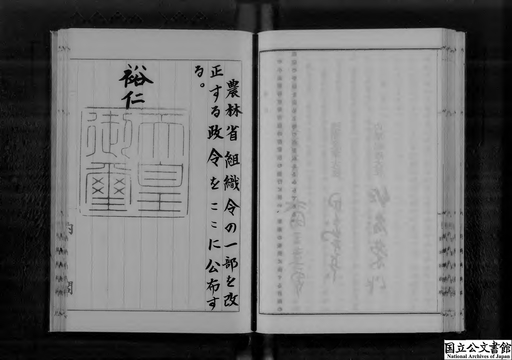 農林省組織令の一部を改
正する政令をここに公布す
る。
裕仁
天皇
御璽
内閣
国立公文書館
National Archives of Japan